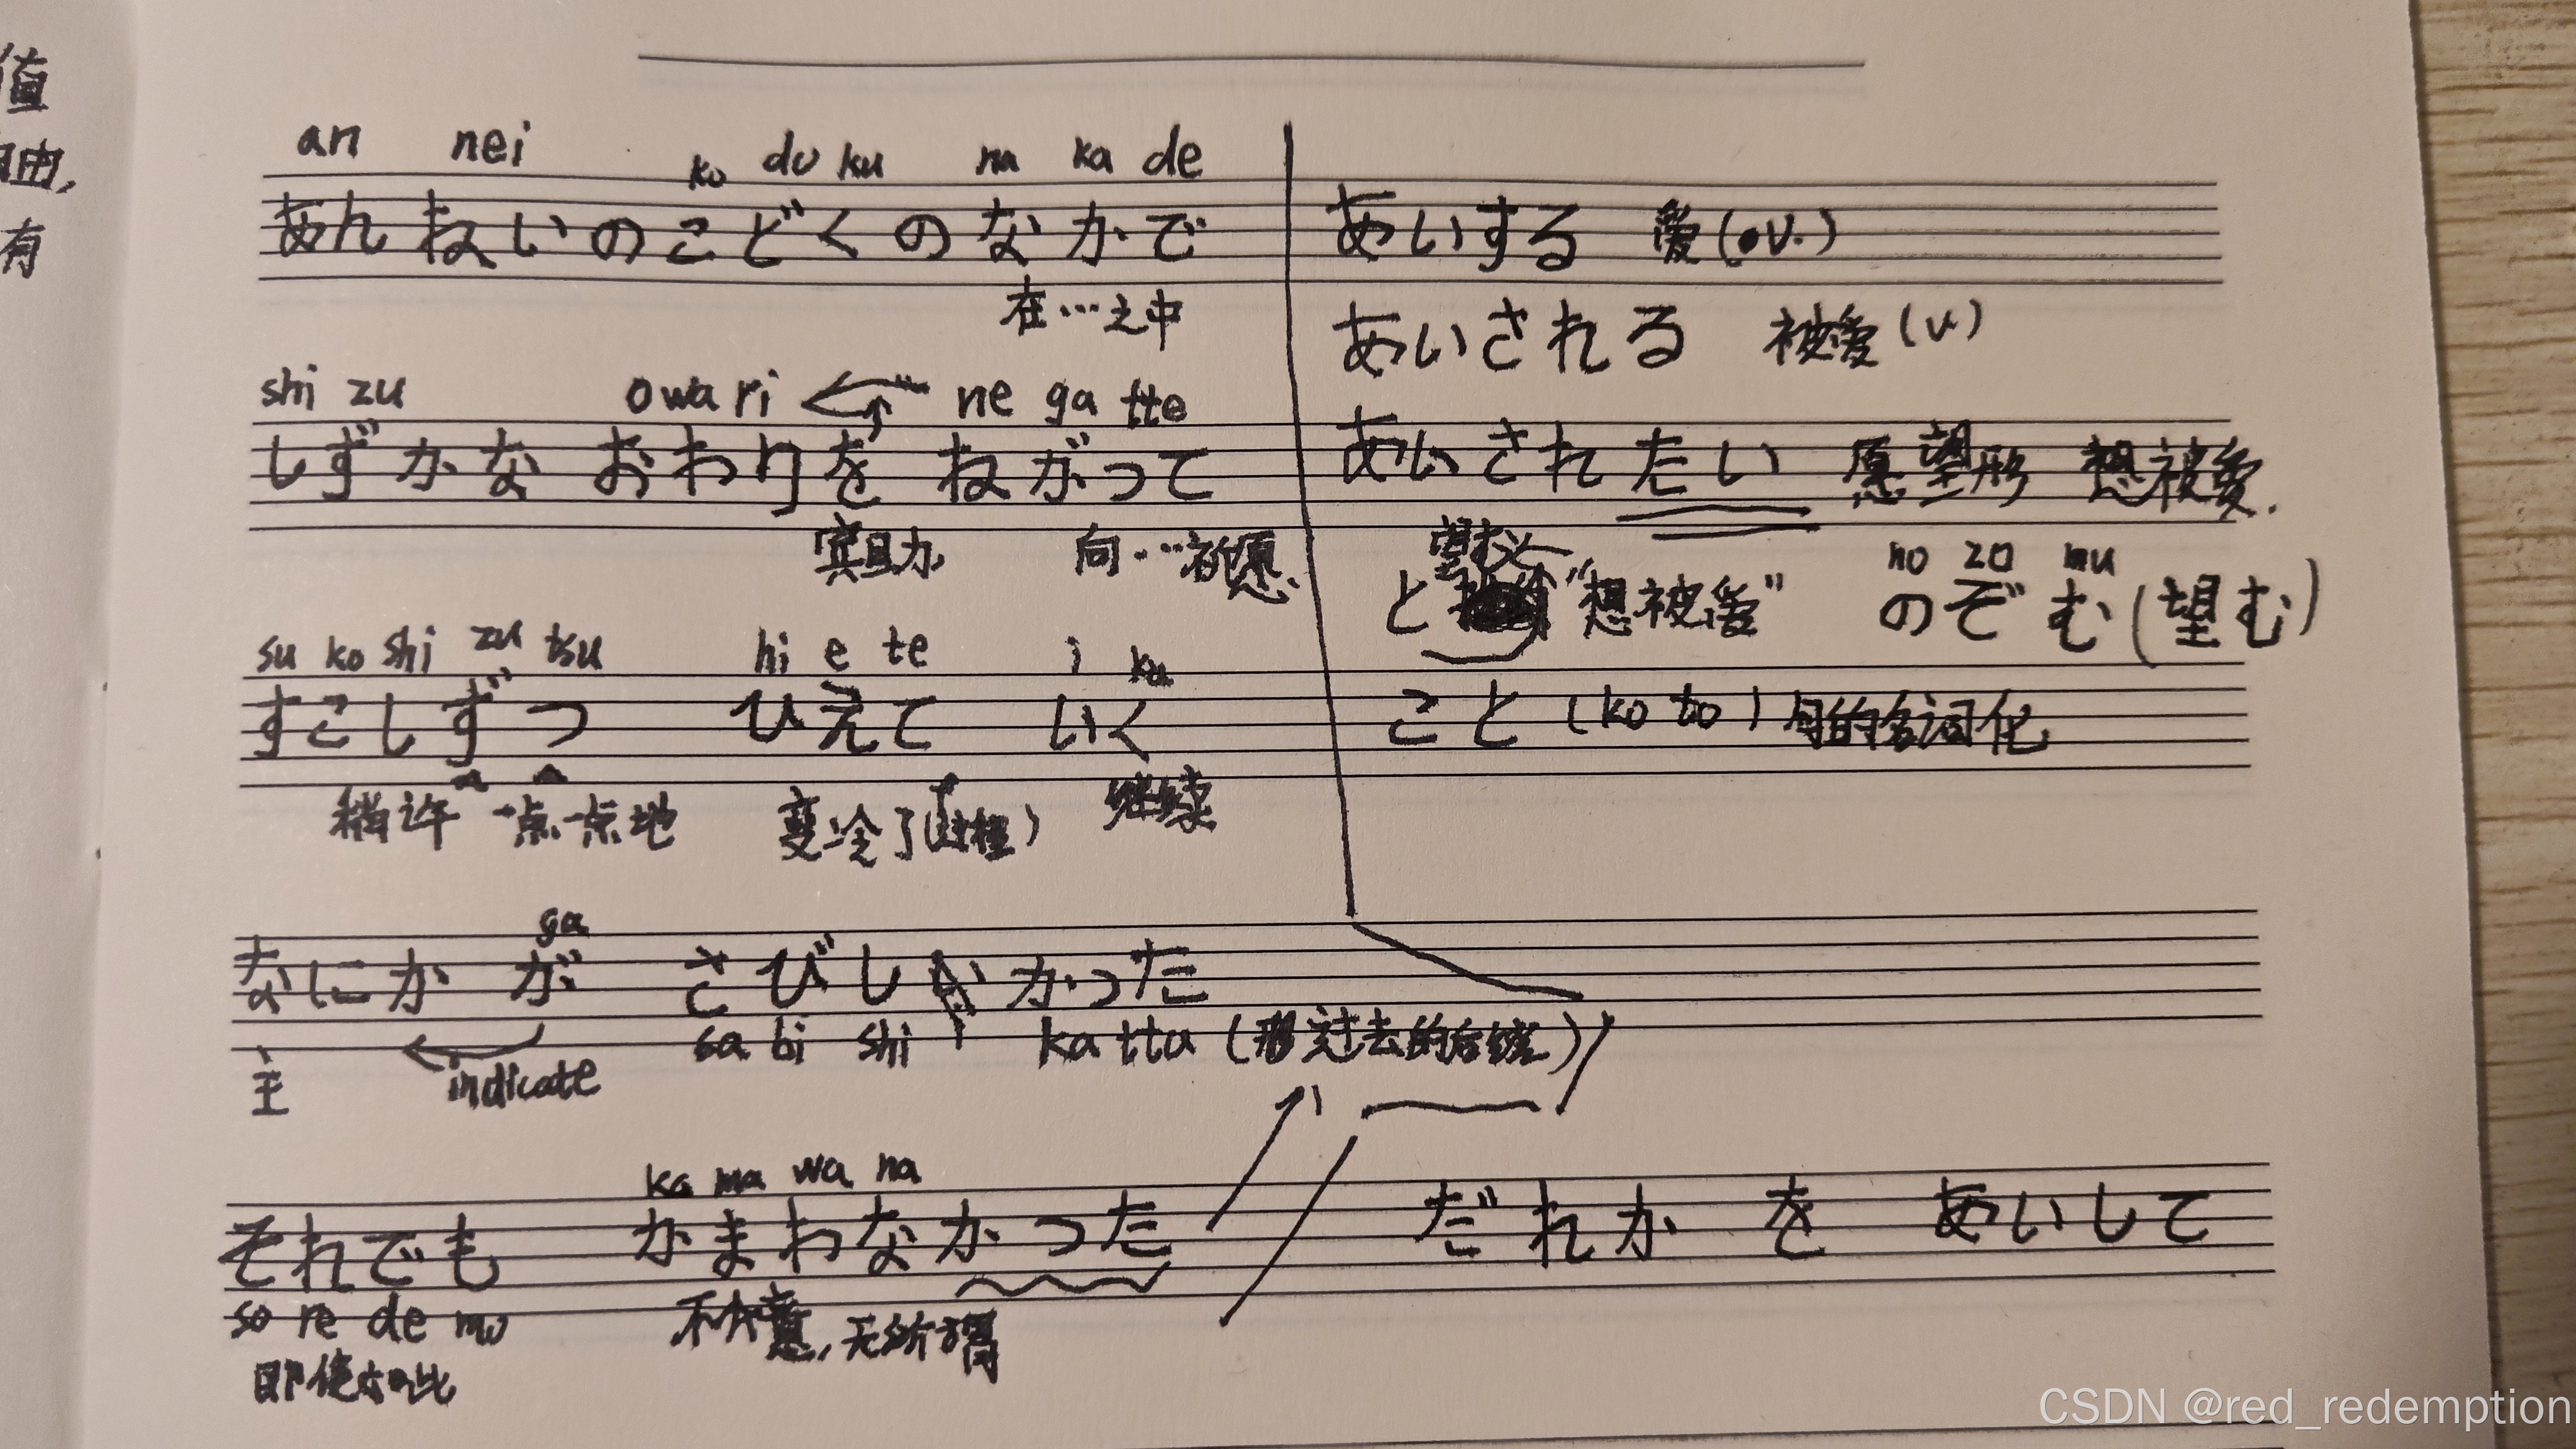 值
由,
有
an nei ko do ku na ka de
あんねいのこどくのなかで
在…之中
shi zu owa ri ne ga tte
しずかな おわりを ねがって
宾助 向…祈愿
su ko shi zu tsu hi e te i ku
すこしずつ ひえて いく
稍许 一点一点地 变冷了(过程) 继续
ga
なにか が さびし かった
sa bi shi i ka tta (形 过去的后缀)
主 indicate
ka ma wa na
それでも かまわなかった
so re de mo 不介意,无所谓
即使如此
あいする 爱(v.)
あいされる 被爱(v)
あいされたい 愿望形 想被爱.
no zo mu
と "想被爱" のぞむ(望む)
こと (ko to) 句的名词化
だれか を あいして
CSDN @red_redemption